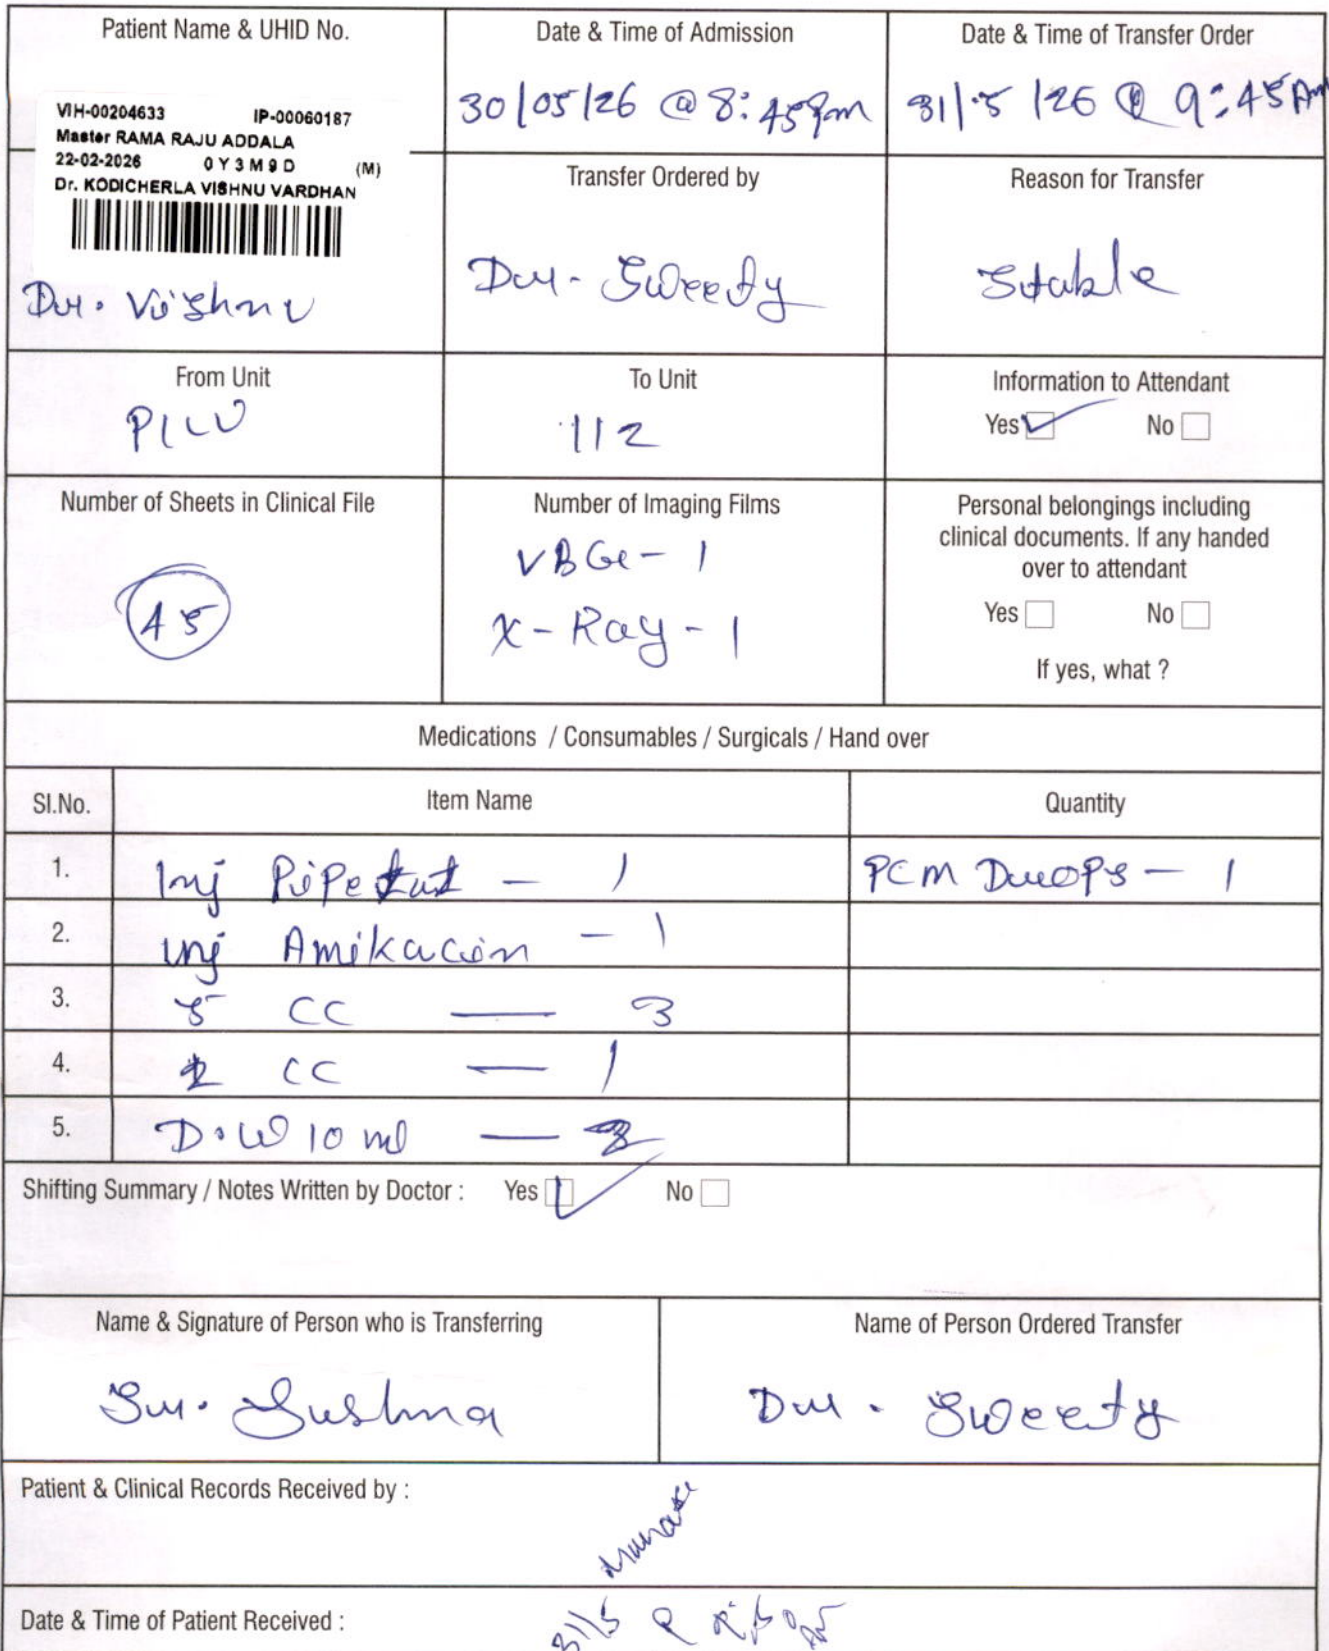 Patient Name & UHID No.
Date & Time of Admission
Date & Time of Transfer Order
VIH-00204633 IP-00060187
Master RAMA RAJU ADDALA
22-02-2026 0 Y 3 M 9 D (M)
Dr. KODICHERLA VISHNU VARDHAN
Dr. Vishnu
30/05/26 @ 8:45pm
31/5/26 @ 9:45 Am
Transfer Ordered by
Dr. Sweety
Reason for Transfer
Stable
From Unit
PICU
To Unit
112
Information to Attendant
Yes No
Number of Sheets in Clinical File
45
Number of Imaging Films
VBG - 1
X-Ray - 1
Personal belongings including
clinical documents. If any handed
over to attendant
Yes No
If yes, what ?
Medications / Consumables / Surgicals / Hand over
SI.No. Item Name Quantity
1. Inj Pipetat - 1 PCM Drops - 1
2. Inj Amikacin - 1
3. 5 CC — 3
4. 2 CC — 1
5. D.W 10 ml —
Shifting Summary / Notes Written by Doctor : Yes No
Name & Signature of Person who is Transferring
Sr. Sushma
Name of Person Ordered Transfer
Dr. Sweety
Patient & Clinical Records Received by :
Date & Time of Patient Received :
31/5 @